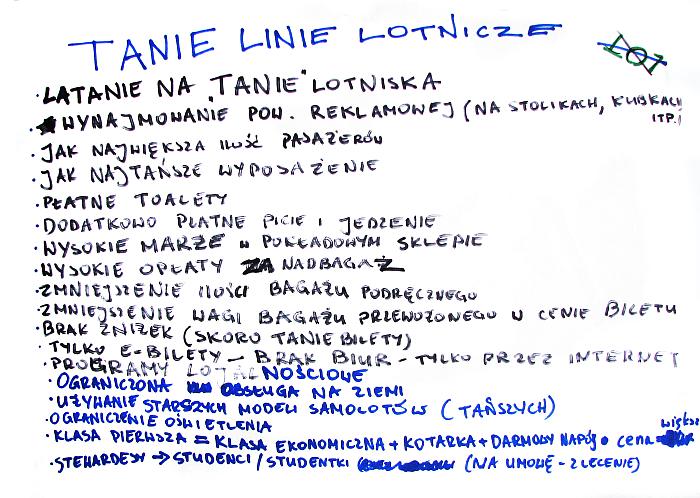 TANIE LINIE LOTNICZE
LOT
· LATANIE NA "TANIE" LOTNISKA
· WYNAJMOWANIE POW. REKLAMOWEJ (NA STOLIKACH, KUBKACH ITP.)
· JAK NAJWIĘKSZA ILOŚĆ PASAŻERÓW
· JAK NAJTAŃSZE WYPOSAŻENIE
· PŁATNE TOALETY
· DODATKOWO PŁATNE PICIE I JEDZENIE
· WYSOKIE MARŻE W POKŁADOWYM SKLEPIE
· WYSOKIE OPŁATY ZA NADBAGAŻ
· ZMNIEJSZENIE ILOŚCI BAGAŻU PODRĘCZNEGO
· ZMNIEJSZENIE WAGI BAGAŻU PRZEWOŻONEGO W CENIE BILETU
· BRAK ZNIŻEK (SKORO TANIE BILETY)
· TYLKO E-BILETY - BRAK BIUR - TYLKO PRZEZ INTERNET
· PROGRAMY LOJALNOŚCIOWE
· OGRANICZONA OBSŁUGA NA ZIEMI
· UŻYWANIE STARSZYCH MODELI SAMOLOTÓW (TAŃSZYCH)
· OGRANICZENIE OŚWIETLENIA
· KLASA PIERWSZA = KLASA EKONOMICZNA + KOTARKA + DARMOWY NAPÓJ • cena większa
· STEWARDESY → STUDENCI / STUDENTKI (NA UMOWĘ - ZLECENIE)